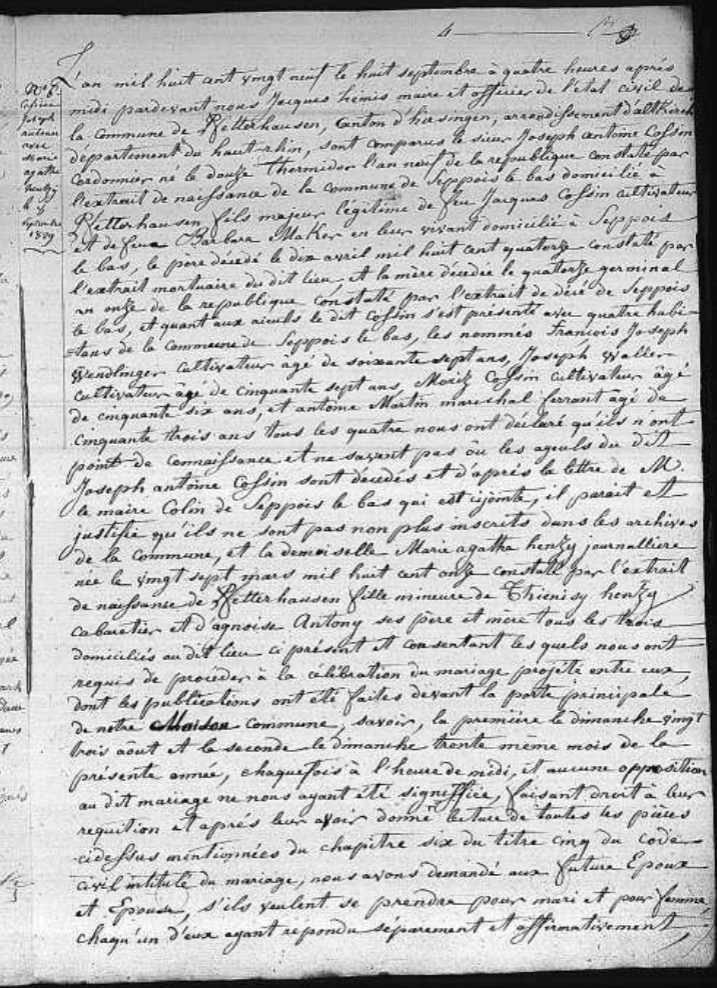 4
No 6.
Cossin
Joseph
antoine
avec
Marie
agatha
henzy
le 8
Septembre
1829
L'an mil huit cent vingt neuf le huit septembre à quatre heures aprés
midi pardevant nous Jacques hémis maire et officier de l'état civil de
la commune de Pfetterhausen, canton d'hirsingen, arrondissement d'altkirch
département du haut-rhin, sont comparus le sieur Joseph antoine Cossin
Cordonnier né le douze thermidor l'an neuf de la republique constaté par
l'extrait de naissance de la commune de Seppois le bas domicilié à
Pfetterhausen fils majeur légitime de feu Jacques Cossin cultivateur
et de feue Barbara Maker en leur vivant domicilié à Seppois
le bas, le père décédé le dix avril mil huit cent quatorze constaté par
l'extrait mortuaire du dit lieu, et la mère décédée le quatorze germinal
an onze de la republique constaté par l'extrait de décé de Seppois
le bas, et quant aux aieuls le dit Cossin s'est présenté avec quatre habi-
-tans de la commune de Seppois le bas, les nommés François Joseph
Wendlinger Cultivateur agé de soixante sept ans, Joseph Waller
cultivateur âgé de cinquante sept ans, Moritz Cossin cultivateur âgé
de cinquante six ans, et antoine Martin marechal ferrant agé de
cinquante trois ans tous les quatre nous ont déclaré qu'ils n'ont
point de connaissance et ne savent pas ôu les ayeuls du dit
Joseph antoine Cossin sont decedés et d'aprés la lettre de M.
le maire Colin de Seppois le bas qui est cijointe, il parait et
justifie qu'ils ne sont pas non plus inscrits dans les archives
de la commune, et la demoiselle Marie agatha henzy journalliere
née le vingt sept mars mil huit cent onze constaté par l'extrait
de naissance de Pfetterhausen fille mineure de Thienisy henzy
cabaretier et d'agnoise Antony ses père et mère tous les trois
domiciliés au dit lieu ci présent et consentant les quels nous ont
requis de procéder à la célébration du mariage projété entre eux,
dont les publications ont été faites devant la porte principale
de notre Maison commune, savoir, la première le dimanche vingt
trois aôut et la seconde le dimanche trente même mois de la
présente année, chaquefois à l'heure de midi, et aucune opposition
au dit mariage ne nous ayant été signiffiée, faisant droit à leur
requition et aprés leur avoir donné lecture de toutes les pièces
cidessus mentionnées du chapitre six du titre cinq du code
civil intitulé du mariage, nous avons demandé aux future Epoux
et Epouse, s'ils veulent se prendre pour mari et pour femme,
chaqu'un d'eux ayant repondu séparement et affirmativement,